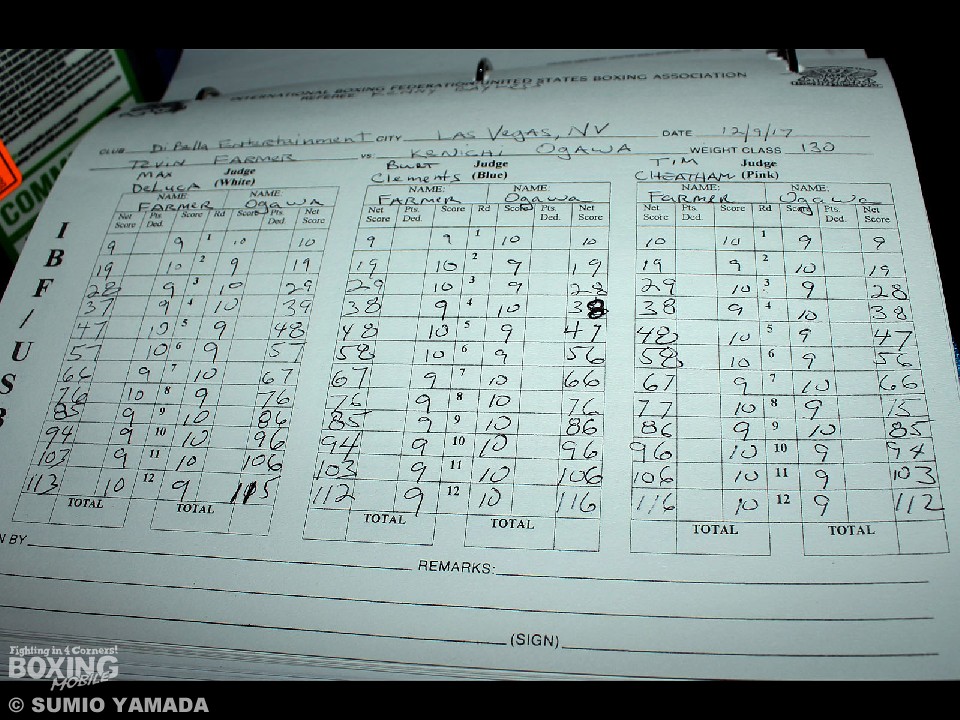 COMM
INTERNATIONAL BOXING FEDERATION/UNITED STATES BOXING ASSOCIATION
REFEREE
CLUB DiBella Entertainment CITY LAS Vegas, NV DATE 12/9/17
TEVIN FARMER VS. KENICHI OGAWA WEIGHT CLASS 130
MAX DeLUCA Judge (White) Burt Clements Judge (Blue) TIM CHEATHAM Judge (Pink)
NAME: NAME: NAME: NAME: NAME: NAME:
FARMER Ogawa FARMER Ogawa FARMER Ogawa
Net Score Pts. Ded. Score Rd Score Pts. Ded. Net Score Net Score Pts. Ded. Score Rd Score Pts. Ded. Net Score Net Score Pts. Ded. Score Rd Score Pts. Ded. Net Score
9 9 1 10 10 9 9 1 10 10 10 10 1 9 9
19 10 2 9 19 19 10 2 9 19 19 9 2 10 19
28 9 3 10 29 29 10 3 9 28 29 10 3 9 28
37 9 4 10 39 38 9 4 10 38 38 9 4 10 38
47 10 5 9 48 48 10 5 9 47 48 10 5 9 47
57 10 6 9 57 58 10 6 9 56 58 10 6 9 56
66 9 7 10 67 67 9 7 10 66 67 9 7 10 66
76 10 8 9 76 76 9 8 10 76 77 10 8 9 75
85 9 9 10 86 85 9 9 10 86 86 9 9 10 85
94 9 10 10 96 94 9 10 10 96 96 10 10 9 94
103 9 11 10 106 103 9 11 10 106 106 10 11 9 103
113 10 12 9 115 112 9 12 10 116 116 10 12 9 112
TOTAL TOTAL TOTAL TOTAL TOTAL TOTAL
I
B
F
/
U
S
B
N BY
REMARKS:
(SIGN)
Fighting in 4 Corners!
BOXING
MOBILE
© SUMIO YAMADA